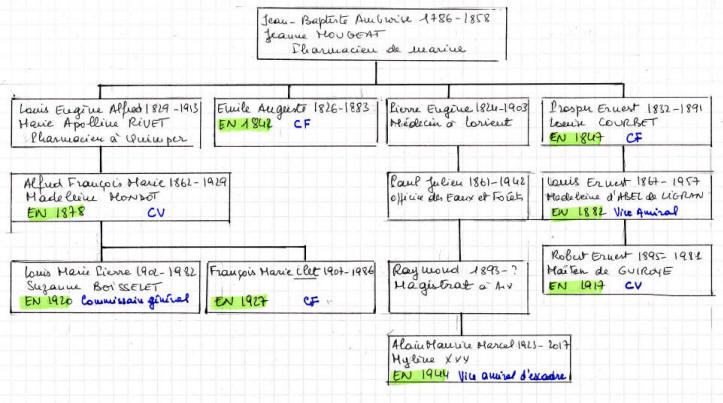 Jean-Baptiste Ambroise 1786-1858
Jeanne MOUGEAT
Pharmacien de marine
Louis Eugène Alfred 1829-1913
Marie Apolline RIVET
Pharmacien à Quimper
Emile Auguste 1826-1883
EN 1842 CF
Pierre Eugène 1824-1903
Médecin à Lorient
Prosper Ernest 1832-1891
Louise COURBET
EN 1847 CF
Alfred François Marie 1862-1929
Madeleine MONDOT
EN 1878 CV
Paul Julien 1861-1942
Officier des Eaux et Forêts
Louis Ernest 1867-1957
Madeleine d'ABEL de
EN 1882 Vice Amiral
Louis Marie Pierre 1902-1982
Suzanne BOISSELET
EN 1920 Commissaire général
François Marie Clet 1907-1986
EN 1927 CF
Raymond 1893-?
Magistrat à
Robert Ernest 1895-1981
de
EN 1917 CV
Alain Maurice Marcel 1923-2017
Mylène XVY
EN 1944 Vice amiral d'escadre